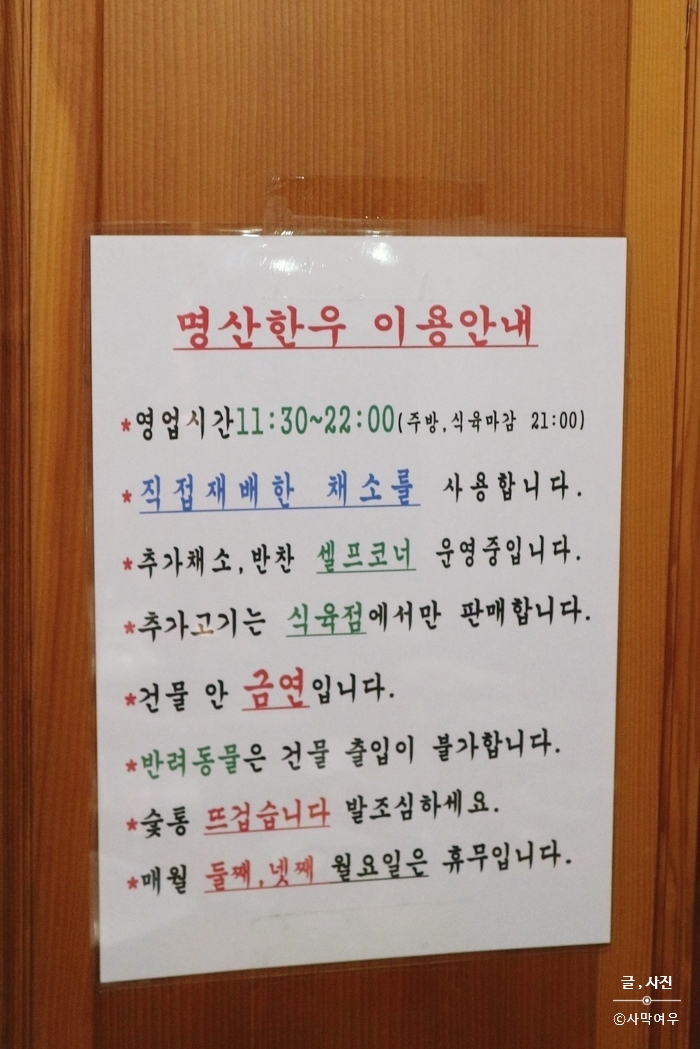 명산한우 이용안내
*영업시간11:30~22:00(주방,식육마감 21:00)
*직접재배한 채소를 사용합니다.
*추가채소,반찬 셀프코너 운영중입니다.
*추가고기는 식육점에서만 판매합니다.
*건물 안 금연입니다.
*반려동물은 건물 출입이 불가합니다.
*숯통 뜨겁습니다 발조심하세요.
*매월 둘째,넷째 월요일은 휴무입니다.
글,사진
©사막여우